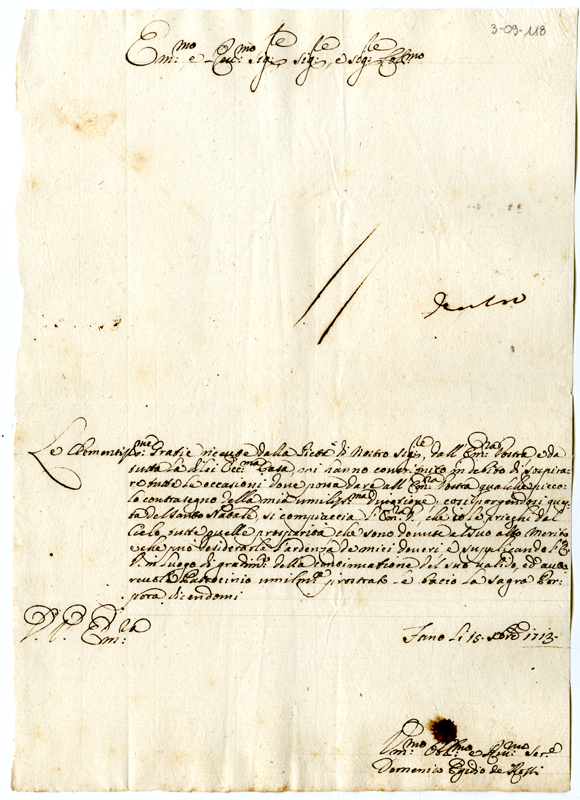 3-09-118
Em:mo e Reu:mo Sig:re Sig:re, e Sig:re Col:mo
Le Clementiss:me Gratie riceuute dalla Pietà di Nostro Sig:re, dall'Em:za Vostra e da
tutta la di lei Ecc:ma Casa, mi hanno constituito in debito di sospira-
re tutte le occasioni doue possa dare all'Em:za Vostra qualche picco-
lo contrasegno della mia umiliss:ma diuozione, così porgendomi questa
del Santo Natale, si compiaccia V. Em:za, che io le prieghi dal
Cielo tutte quelle prosperità che sono douute al Suo alto Merito
e che può desiderarle l'ardenza de miei doueri e supplicando V. E.
in luogo di gradim:to della continuatione del suo ualido, ed auto-
reuole Patrocinio umilm:te prostrato le bacio la Sagra Por-
pora di V. Em:za
Fano li 15. Xbre 1713.
Um:mo e Reu:mo Ser:e
Domenico Egidio de